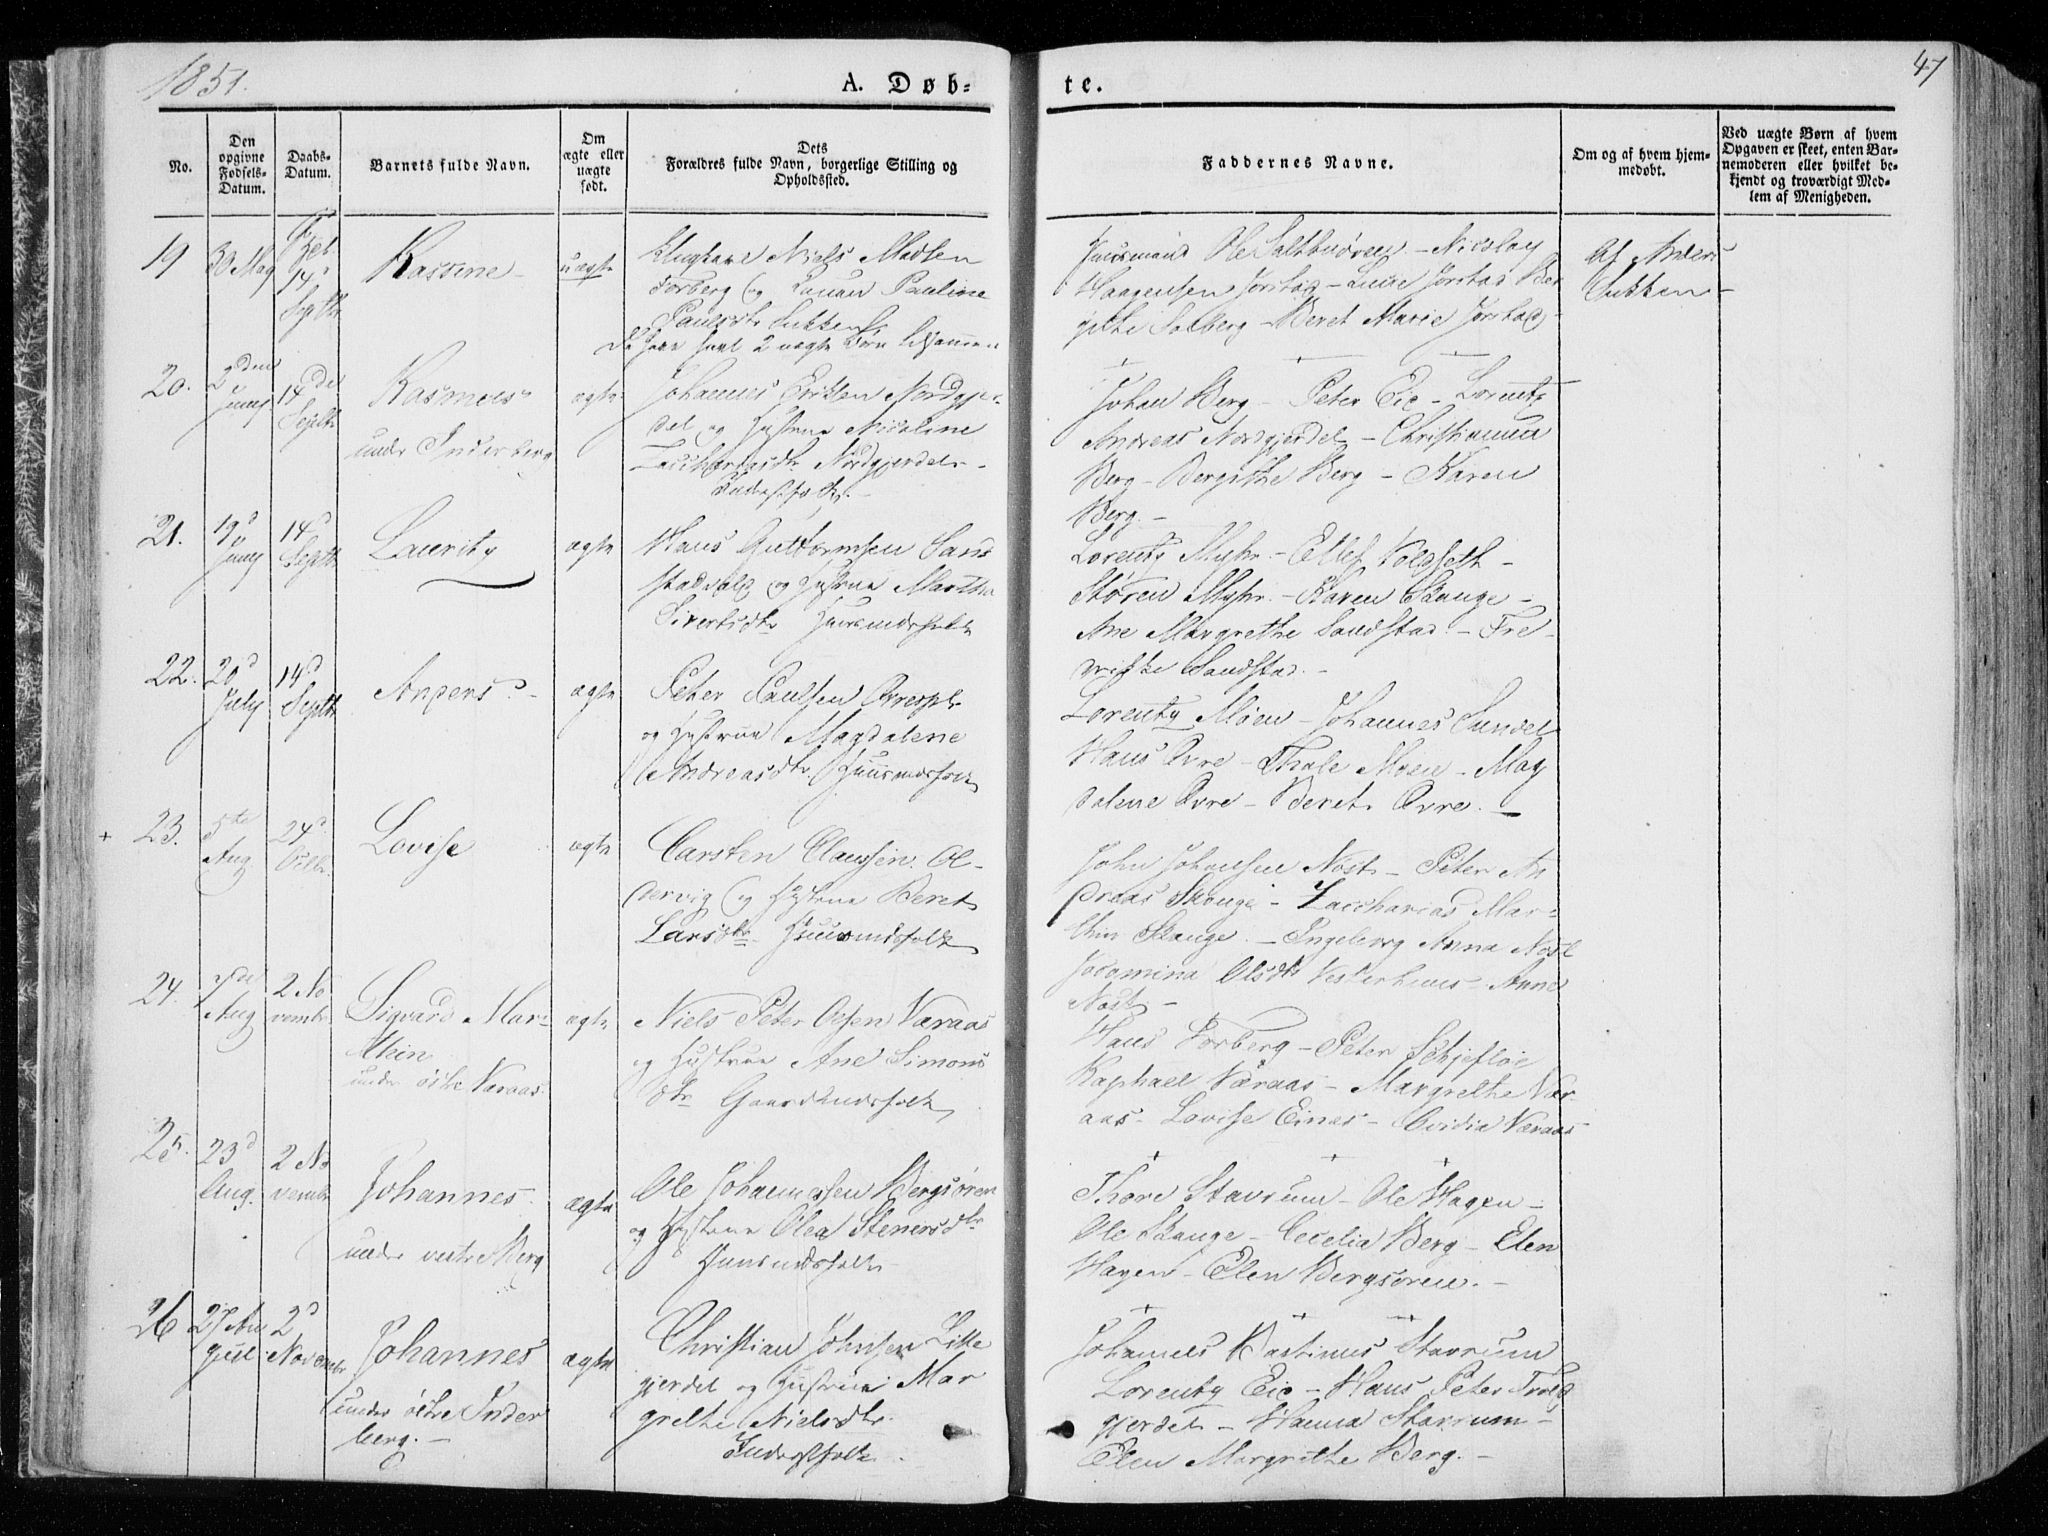 1851.
A. Døb-
te.
47
No.
Den opgivne Fødsels-Datum.
Daabs-Datum.
Barnets fulde Navn.
Om ægte eller uægte født.
Dets Forældres fulde Navn, borgerlige Stilling og Opholdssted.
Faddernes Navne.
Om og af hvem hjem-medøbt.
Ved uægte Børn af hvem Opgaven er skeet, enten Bar-nemoderen eller hvilket be-kjendt og troværdigt Med-lem af Menigheden.
19
30 May
14d
Septbr
uægte
Niels Madsen
Forberg og Pauline
Paulsdtr
2 uægte Børn
Nicolay
Haagensen Jørstad - Jørstad
Solberg - Beret Marie Jørstad
Af Anders
20.
2den
Juny
14de
Septbr
Rasmus
under Inderberg
ægte
Johannes Eriksen Nordgjer-
del og Hustrue Nicoline
Zacchariasdtr Nordgjerdet -
Johan Berg - Peter Eie - Lorentz
Andreas Nordgjerdet - Christianna
Berg - Bergithe Berg - Karen
Berg. -
21.
19d
Juny
14d
Septbr
Lauritz
ægte
Hans Guttormsen Sand
stadvald og Hustrue Martha
Sivertsdtr Huusmdsfolk
Lorentz Myhr. - Etlef Voldseth -
Støren Myhr. - Karen Skauge -
Ane Margrethe Sandstad. - Fre-
drikke Sandstad. -
22.
20d
July
14d
Septbr
Anders. -
ægte
Peter Paulsen
og Hustrue Magdalene
Andreasdtr. Huusmdsfolk
Lorentz Moen - Johannes Sundet
Hans Øvre - Thale Moen - Mag
dalene Øvre - Beret Øvre. -
23.
5te
Aug
24d
Octbr.
Lovise
ægte
Carsten Claussen Ol-
dervig og Hustrue Beret
Larsdtr. Huusmdsfolk
John Johansen Nøst - Peter An
dreas Skauge - Zaccharias Mar-
thin Skauge. - Ingeborg Anna Nøst
Jacomina Olsdtr Vesterhuus - Anne
Nøst -
24.
7de
Aug
2 No
vembr
Sigvard Mar-
thin
under østre Væraas
ægte
Niels Peter Olsen Væraas
og Hustrue Ane Simons
dtr Gaardmdsfolk
Hans Forberg - Peter Schjefloe
Raphael Væraas - Margrethe Vær-
aas - Lovise Einas - Ovidia Væraas
25.
23d
Aug.
2 No
vembr
Johannes.
under vestre Berg
ægte
Ole Johannessen Bergsøren
og Hustrue Olea Stenersdtr
Huusmdsfolk -
Thore Stavrum - Ole Hagen -
Ole Skauge - Cecelia Berg - Elen
Hagen - Elen Bergsøren. -
26
27 Au
gust
2d
November
Johannes
under østre Inder
berg. -
ægte
Christian Johnsen Lille
gjerdet og Hustrue Mar
grethe Nielsdtr.
Inderstfolk.
Johannes Bastinus Stavrum
Lorentz Eie - Hans Peter
gjerdet - Hanna Stavrum -
Elen Margrethe Berg. -